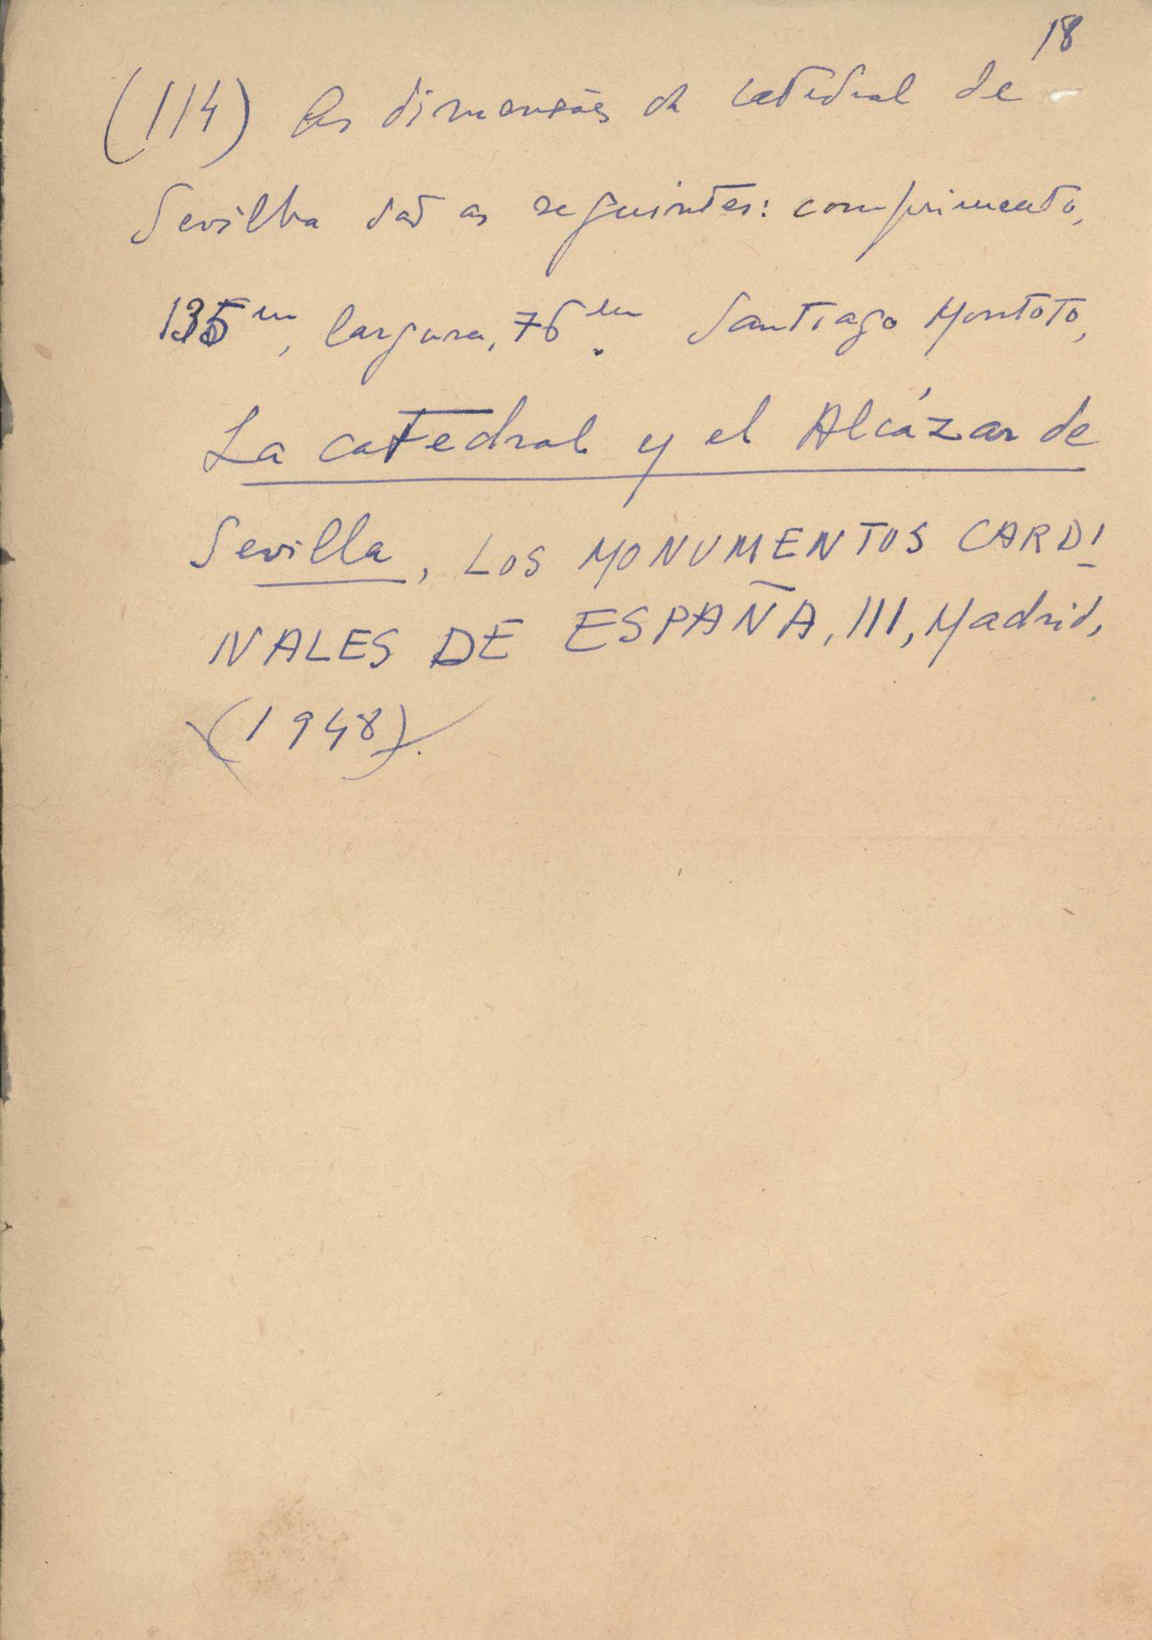 18
(114) As dimensões da catedral de
Sevilha são as seguintes: comprimento,
135m, largura, 76m. Santiago Montoto,
La catedral y el Alcázar de
Sevilla, LOS MONUMENTOS CARDI-
NALES DE ESPAÑA, III, Madrid,
(1948).